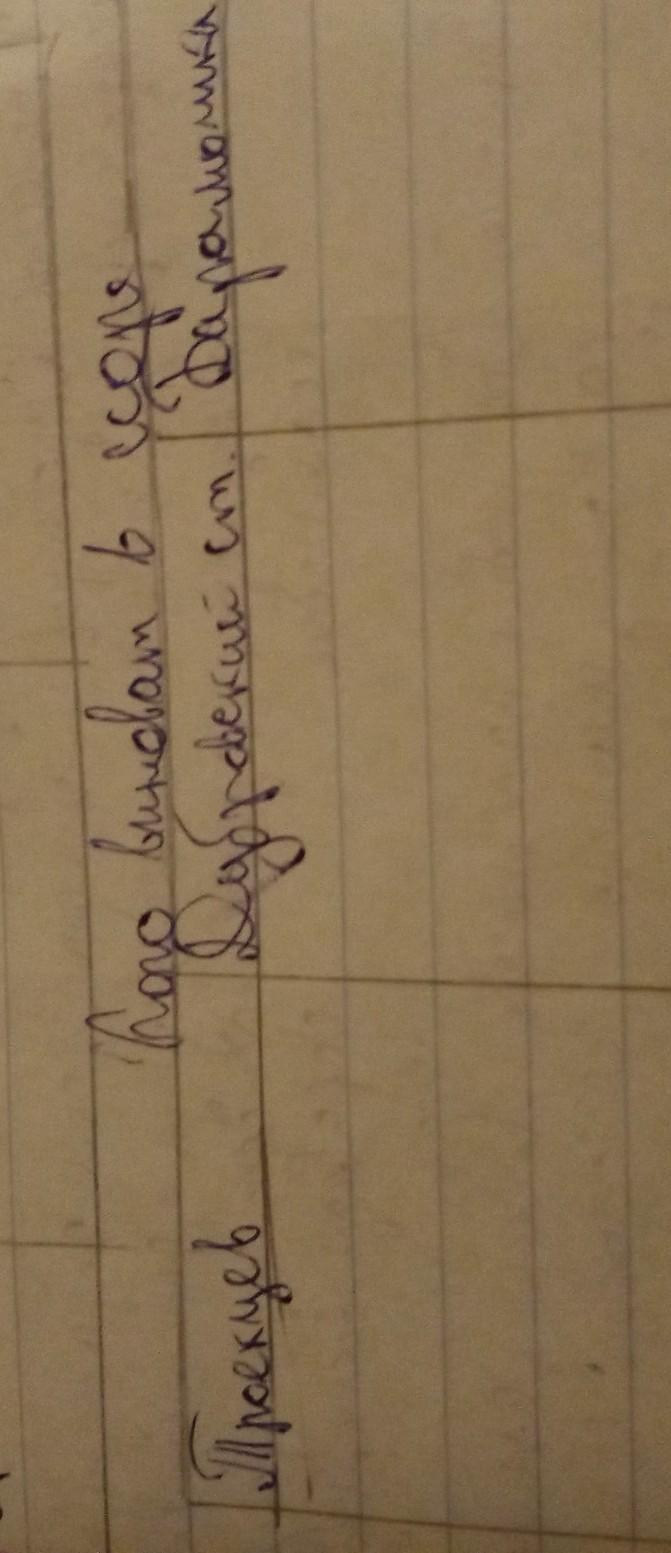 Кто виноват в ссоре
Троекуцев Дубровский ст. Парамошка